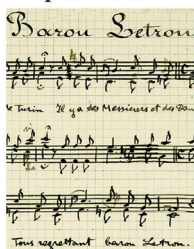 Baron Letron
de Turin Il y a des Messieurs et des Dam
Tous regrettant baron Letron.